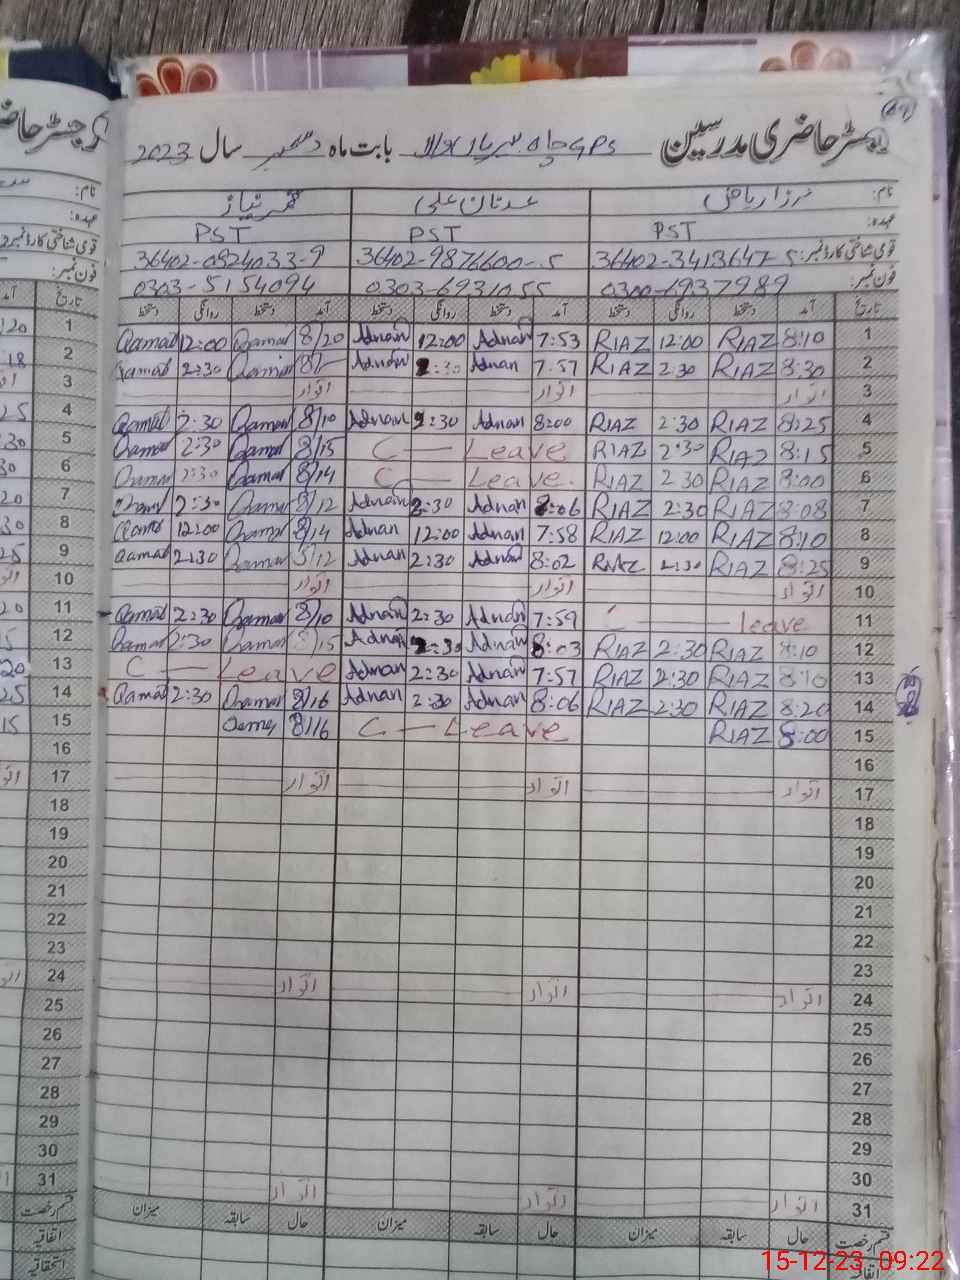 رجسٹر حاضری مدرسین GPS چاہ بابت ماہ دسمبر سال 2023
نام: مرزا ریاض عدنان علی قمر نیاز
عہدہ: PST PST PST
قومی شناختی کارڈ نمبر: 36402-3413647-5 36402-9876600-5 36402-0924033-9
فون نمبر: 0300-6937989 0303-6931055 0303-5154094
تاریخ آمد دستخط روانگی دستخط آمد دستخط روانگی دستخط آمد دستخط روانگی دستخط
1 8:10 RIAZ 12:00 RIAZ 7:53 Adnan 12:00 Adnan 8/20 Qamar 12:00 Qamar
2 8:30 RIAZ 2:30 RIAZ 7:57 Adnan 2:30 Adnan Qamar 2:30 Qamar
3 اتوار اتوار اتوار
4 8:25 RIAZ 2:30 RIAZ 8:00 Adnan 2:30 Adnan 8/10 Qamar 2:30 Qamar
5 8:15 RIAZ 2:30 RIAZ C — Leave 8/15 Qamar 2:30 Qamar
6 8:00 RIAZ 2:30 RIAZ C — Leave 8/14 Qamar 2:30 Qamar
7 8:08 RIAZ 2:30 RIAZ 8:06 Adnan 2:30 Adnan 8/12 Qamar 2:30 Qamar
8 8:10 RIAZ 12:00 RIAZ 7:58 Adnan 12:00 Adnan 8/14 Qamar 12:00 Qamar
9 8:25 RIAZ 2:30 RIAZ 8:02 Adnan 2:30 Adnan 8/12 Qamar 2:30 Qamar
10 اتوار اتوار اتوار
11 C — leave 7:59 Adnan 2:30 Adnan 8/10 Qamar 2:30 Qamar
12 8:10 RIAZ 2:30 RIAZ 8:03 Adnan 2:30 Adnan 8/15 Qamar 2:30 Qamar
13 8:10 RIAZ 2:30 RIAZ 7:57 Adnan 2:30 Adnan C — Leave
14 8:20 RIAZ 2:30 RIAZ 8:06 Adnan 2:30 Adnan 8/16 Qamar 2:30 Qamar
15 8:00 RIAZ C — Leave 8/16 Qamar
16
17 اتوار اتوار اتوار
18
19
20
21
22
23
24 اتوار اتوار اتوار
25
26
27
28
29
30
31 اتوار اتوار اتوار
قسم رخصت حال سابقہ میزان حال سابقہ میزان حال سابقہ میزان
اتفاقیہ
15-12-23 09:22